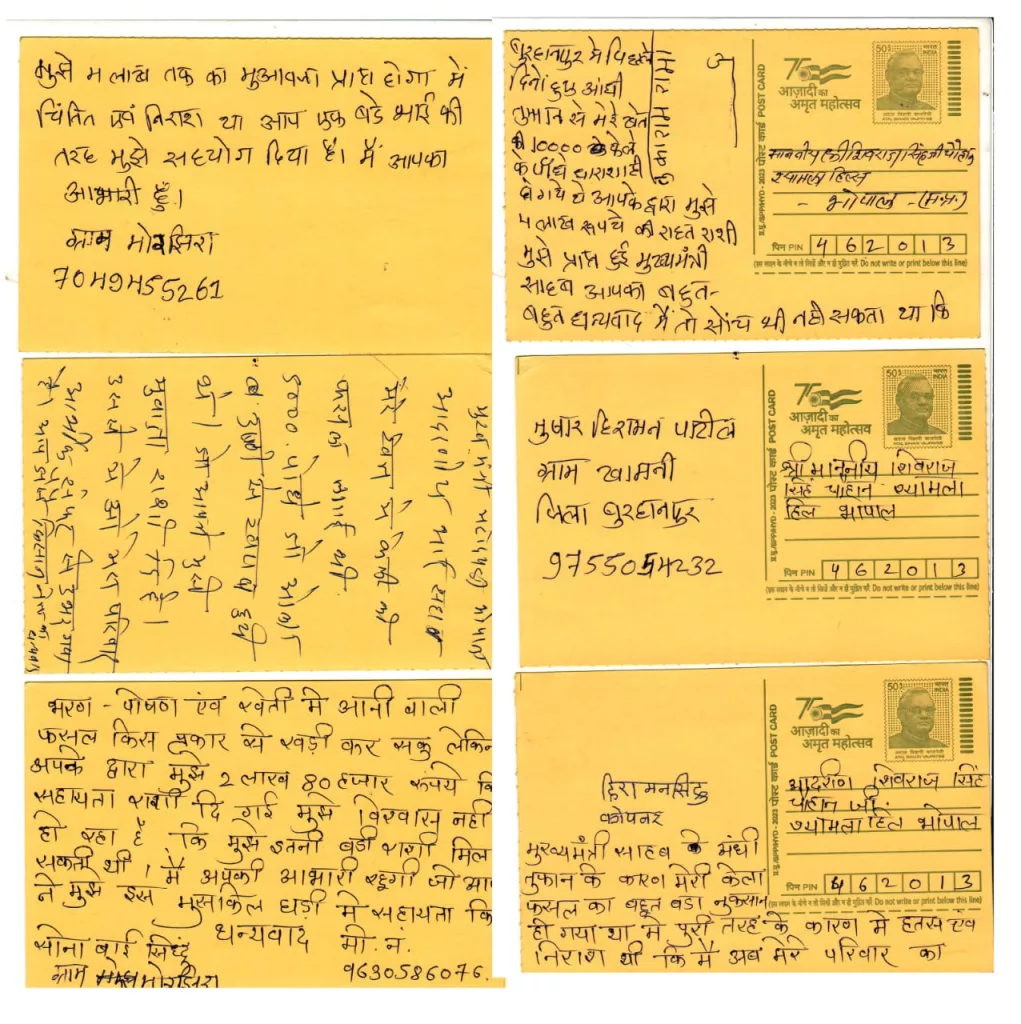 मुझे 4 लाख तक का मुआवजा प्राप्त होगा में
चिंतित एवं निराश था आप एक बडे भाई की
तरह मुझे सहयोग दिया है। मैं आपका
आभारी हुँ।
ग्राम मोरझिरा
7049455261
बुरहानपुर मे पिछले
दिनों हुए आंधी
तुफान से मेरे खेत
के 10000 केले
के पौधे धाराशाही
हो गये थे आपके द्वारा मुझे
4 लाख रूपये की राहत राशी
मुझे प्राप्त हुई मुख्यमंत्री
साहब आपका बहुत-
बहुत धन्यवाद मैं तो सोंच भी नही सकता था कि
तुकाराम रामा
POST CARD पोस्ट कार्ड
75
आज़ादी का
अमृत महोत्सव
50
भारत
INDIA
माननीय श्री शिवराज सिंह जी चौहान
श्यामला हिल्स
- भोपाल - (म.प्र.)
पिन PIN 462013
(इस लाइन के नीचे न तो लिखें और न ही मुद्रित करें Do not write or print below this line)
मुख्यमंत्री महोदय भोपाल
आदरणीय भाई साहब
मेरे खेत मे केली की
फसल लगाई थी
5000 पौधे जो आंधी
मे खराब हुये
थे। जो आपने मुझे
मुवाजा राशी दि है।
उससे मे ओर मेरा परिवार
आर्थिक संकट से उभर गया
है।
तुषार हिरामन पाटील
ग्राम खामनी
जिला बुरहानपुर
9755054232
POST CARD पोस्ट कार्ड
75
आज़ादी का
अमृत महोत्सव
50
भारत
INDIA
श्री माननीय शिवराज
सिंह चौहान श्यामला
हिल भोपाल
पिन PIN 462013
(इस लाइन के नीचे न तो लिखें और न ही मुद्रित करें Do not write or print below this line)
भरण - पोषण एंव खेती मे आनी वाली
फसल किस प्रकार से खड़ी कर सकु लेकिन
अपके द्वारा मुझे 2 लारव 80 हजार रूपये कि
सहायता राशी दि गई मुझे विश्वास नही
हो रहा है कि मुझे इतनी बडी राशी मिल
सकती थी। मै अपकी आभारी रहूगी जो आप
ने मुझे इस मुसकिल घड़ी मे सहायता कि
धन्यवाद मो. नं.
सोना बाई सिध्दु 9630586076.
ग्राम मोरझिरा
हिरामनसिद्धु
मुख्यमंत्री साहब के मंधी
तुफान के कारण मेरी केला
फसल का बहुत बडा नुकसान
हो गया था मे पुरी तरह के कारण मे हतास एंव
निराश थी कि मै अब मेरे परिवार का
POST CARD पोस्ट कार्ड
75
आज़ादी का
अमृत महोत्सव
50
भारत
INDIA
आदरणिय शिवराज सिंह
चौहान जी
श्यामला हिल भोपाल
पिन PIN 462013
(इस लाइन के नीचे न तो लिखें और न ही मुद्रित करें Do not write or print below this line)